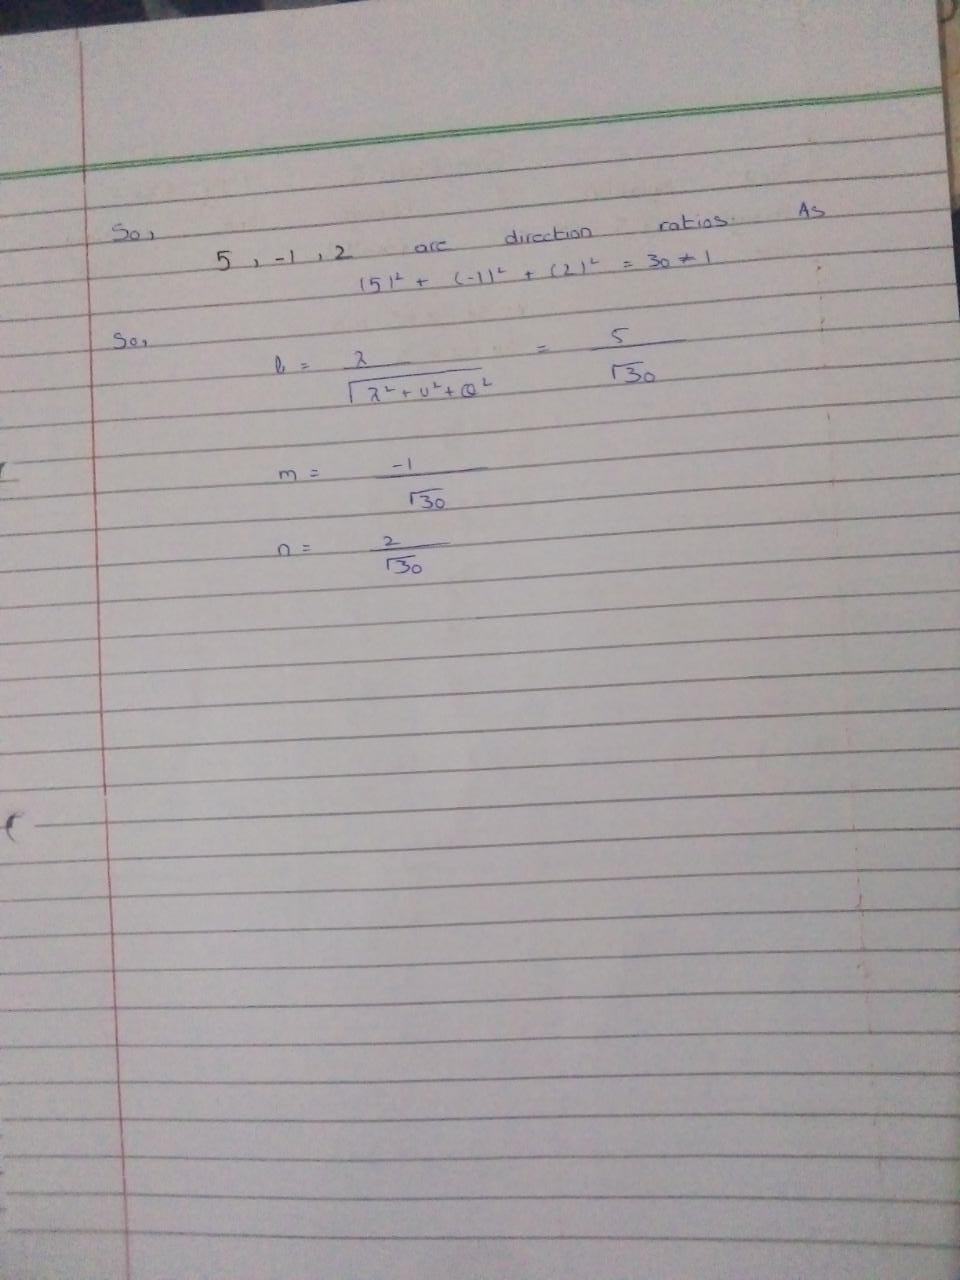 So,
5, -1, 2 are direction ratios. As
(5)² + (-1)² + (2)² = 30 ≠ 1
So,
l = λ / √(λ² + υ² + θ²) = 5 / √30
m = -1 / √30
n = 2 / √30